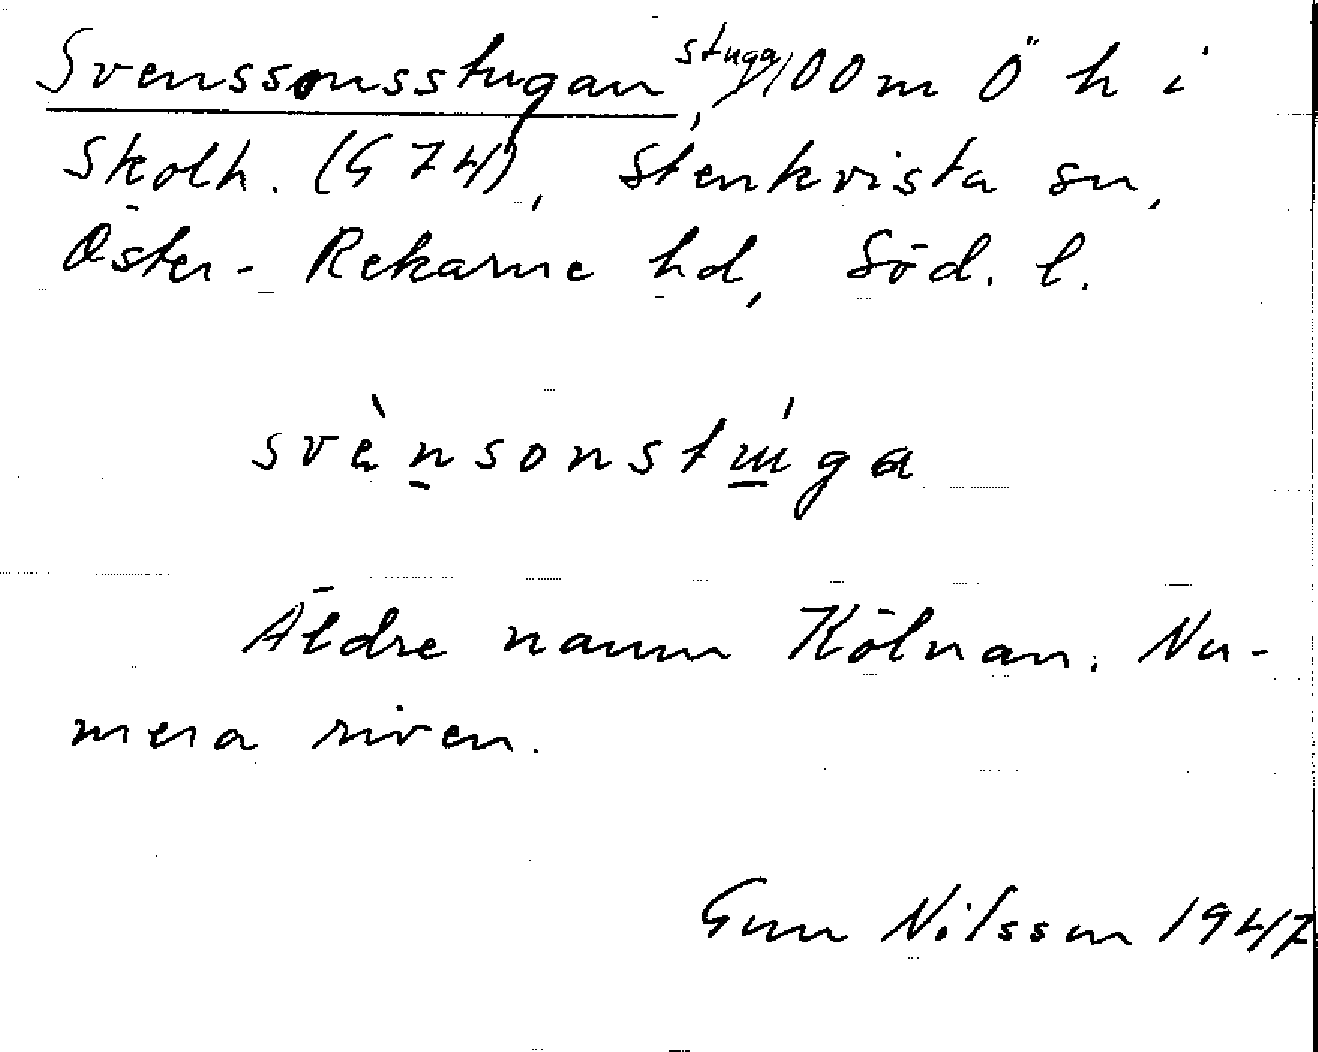 Svenssonsstugan, stuga 100 m Ö h i
Skolh. (G 74), Stenkvista sn,
Öster-Rekarne hd, Söd. l.
svènsonstúga
Äldre namn Kölnan. Nu-
mera riven.
Gun Nilsson 1947